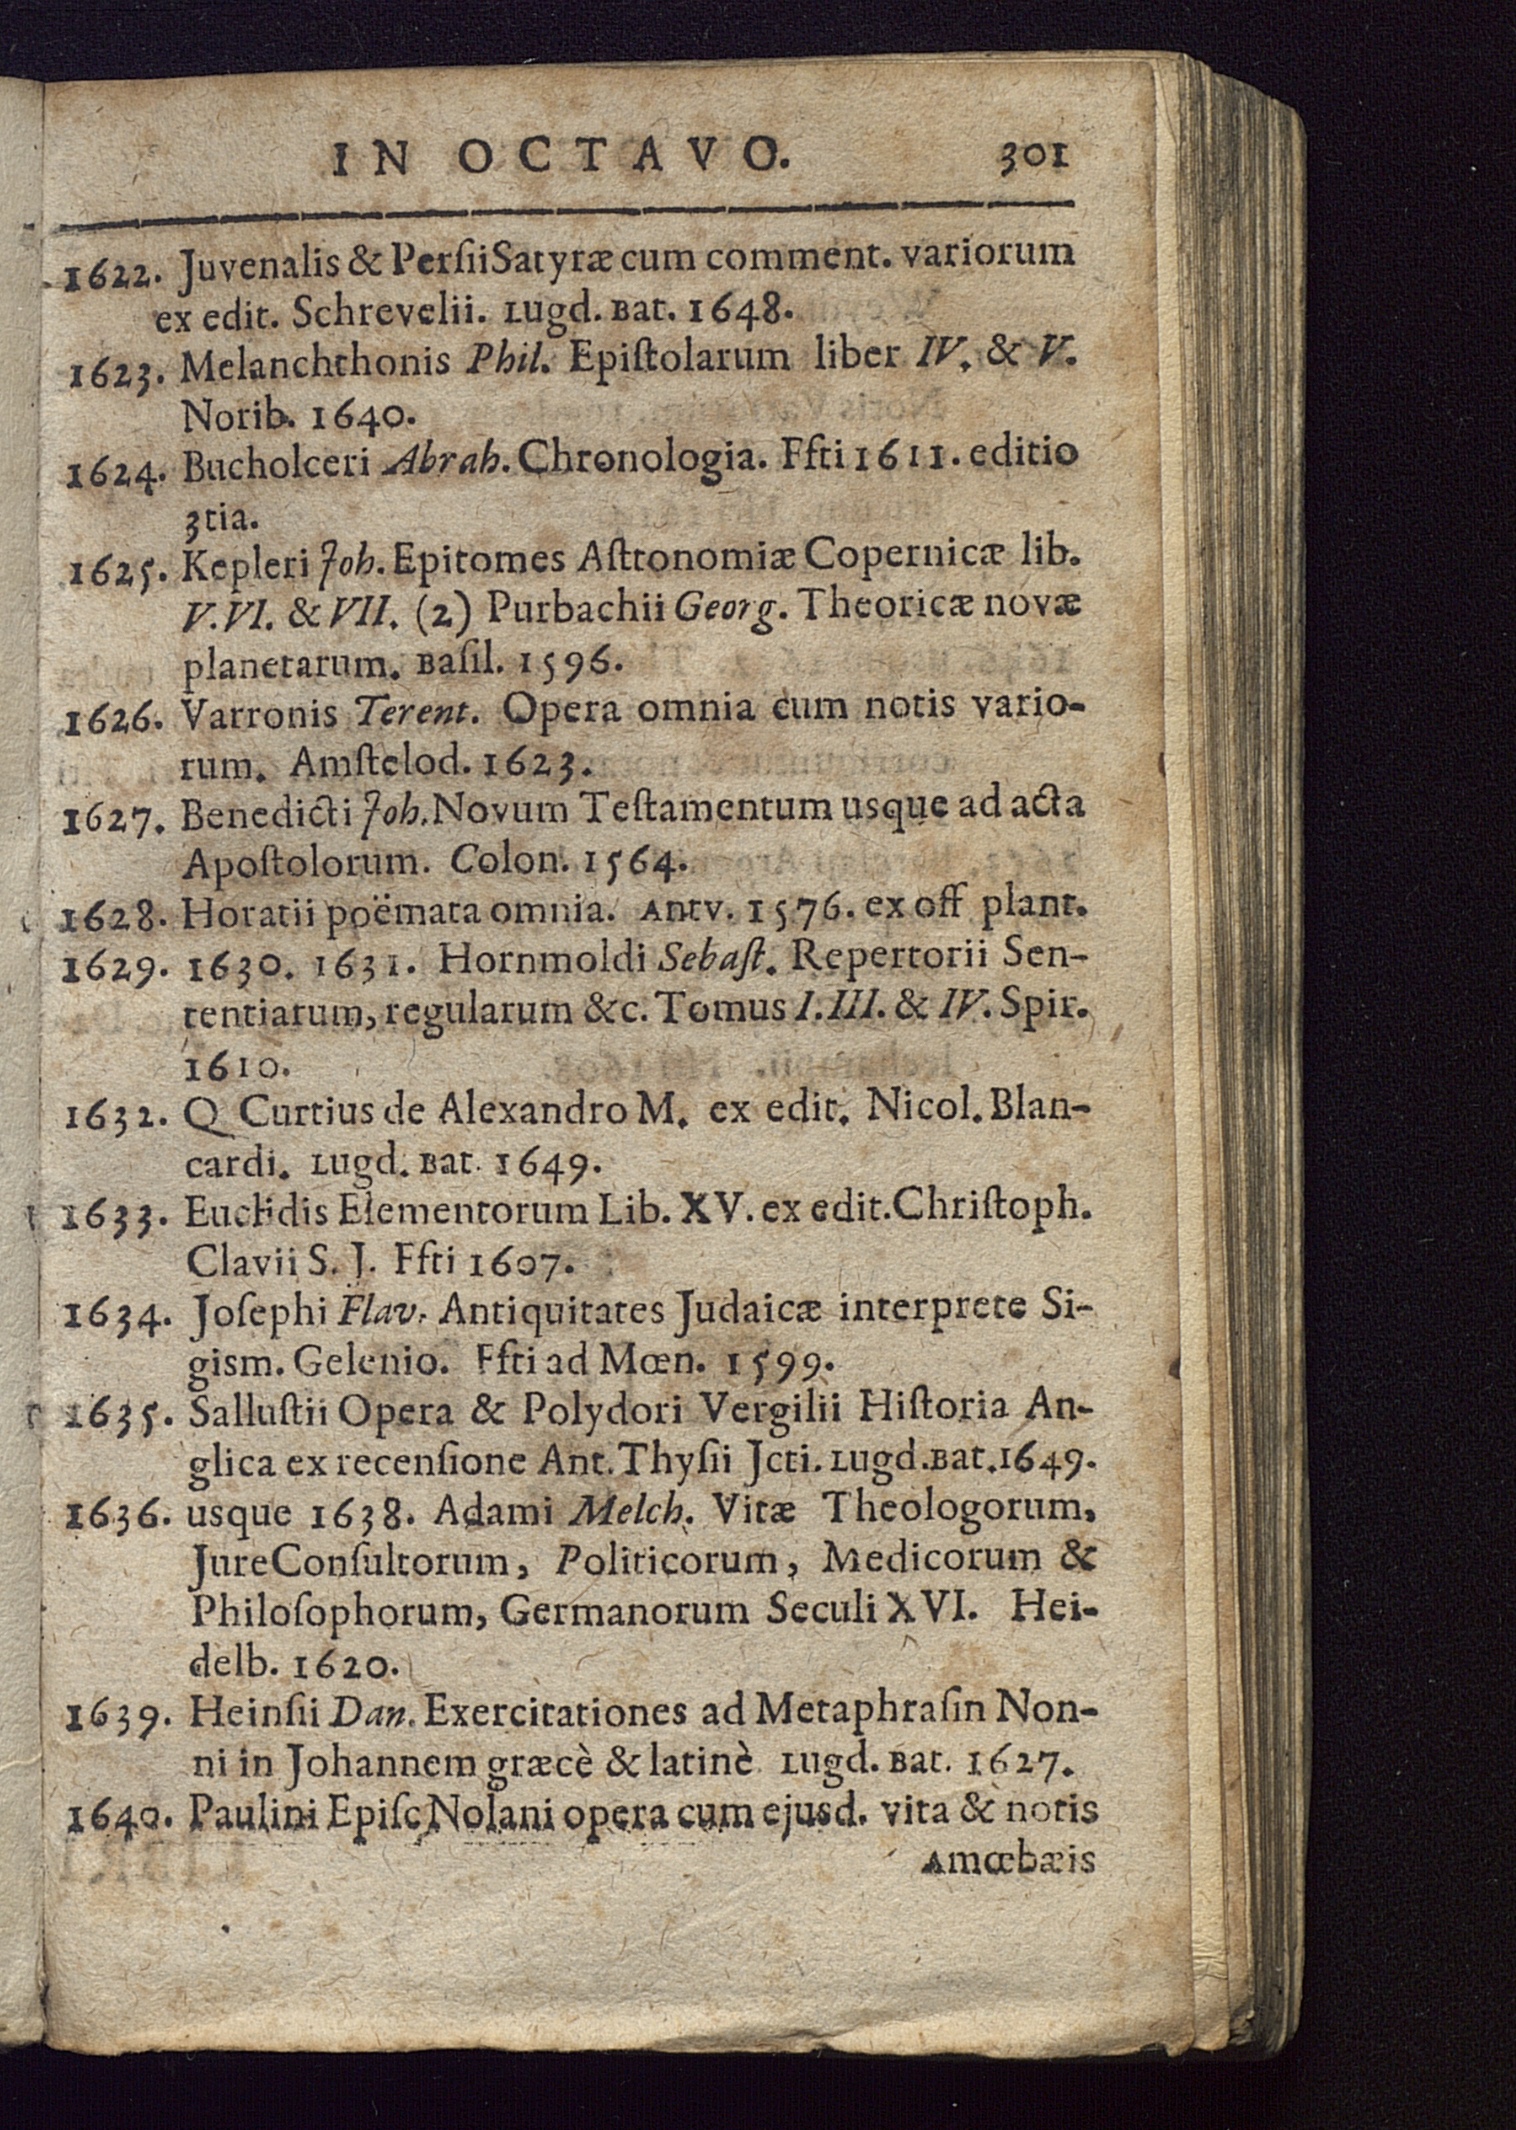 IN OCTAVO. 301
1622. Juvenalis & Perſii Satyræ cum comment. variorum
ex edit. Schrevelii. Lugd. Bat. 1648.
1623. Melanchthonis Phil. Epiſtolarum liber IV. & V.
Norib. 1640.
1624. Bucholceri Abrah. Chronologia. Ffti 1611. editio
3tia.
1625. Kepleri Joh. Epitomes Aſtronomiæ Copernicæ lib.
V. VI. & VII. (2) Purbachii Georg. Theoricæ novæ
planetarum. Baſil. 1596.
1626. Varronis Terent. Opera omnia cum notis vario-
rum. Amſtelod. 1623.
1627. Benedicti Joh. Novum Teſtamentum usque ad acta
Apoſtolorum. Colon. 1564.
1628. Horatii poëmata omnia. Antv. 1576. ex off plant.
1629. 1630. 1631. Hornmoldi Sebaſt. Repertorii Sen-
tentiarum, regularum &c. Tomus I. III. & IV. Spir.
1610.
1632. Q Curtius de Alexandro M. ex edit. Nicol. Blan-
cardi. Lugd. Bat. 1649.
1633. Euclidis Elementorum Lib. XV. ex edit. Chriſtoph.
Clavii S. J. Ffti 1607.
1634. Joſephi Flav. Antiquitates Judaicæ interprete Si-
gism. Gelenio. Ffti ad Mœn. 1599.
1635. Salluſtii Opera & Polydori Vergilii Hiſtoria An-
glica ex recenſione Ant. Thyſii Jcti. Lugd. Bat. 1649.
1636. usque 1638. Adami Melch. Vitæ Theologorum,
JureConſultorum, Politicorum, Medicorum &
Philoſophorum, Germanorum Seculi XVI. Hei-
delb. 1620.
1639. Heinſii Dan. Exercitationes ad Metaphraſin Non-
ni in Johannem græcè & latinè Lugd. Bat. 1627.
1640. Paulini Epiſc Nolani opera cum ejusd. vita & notis
Amœbæis